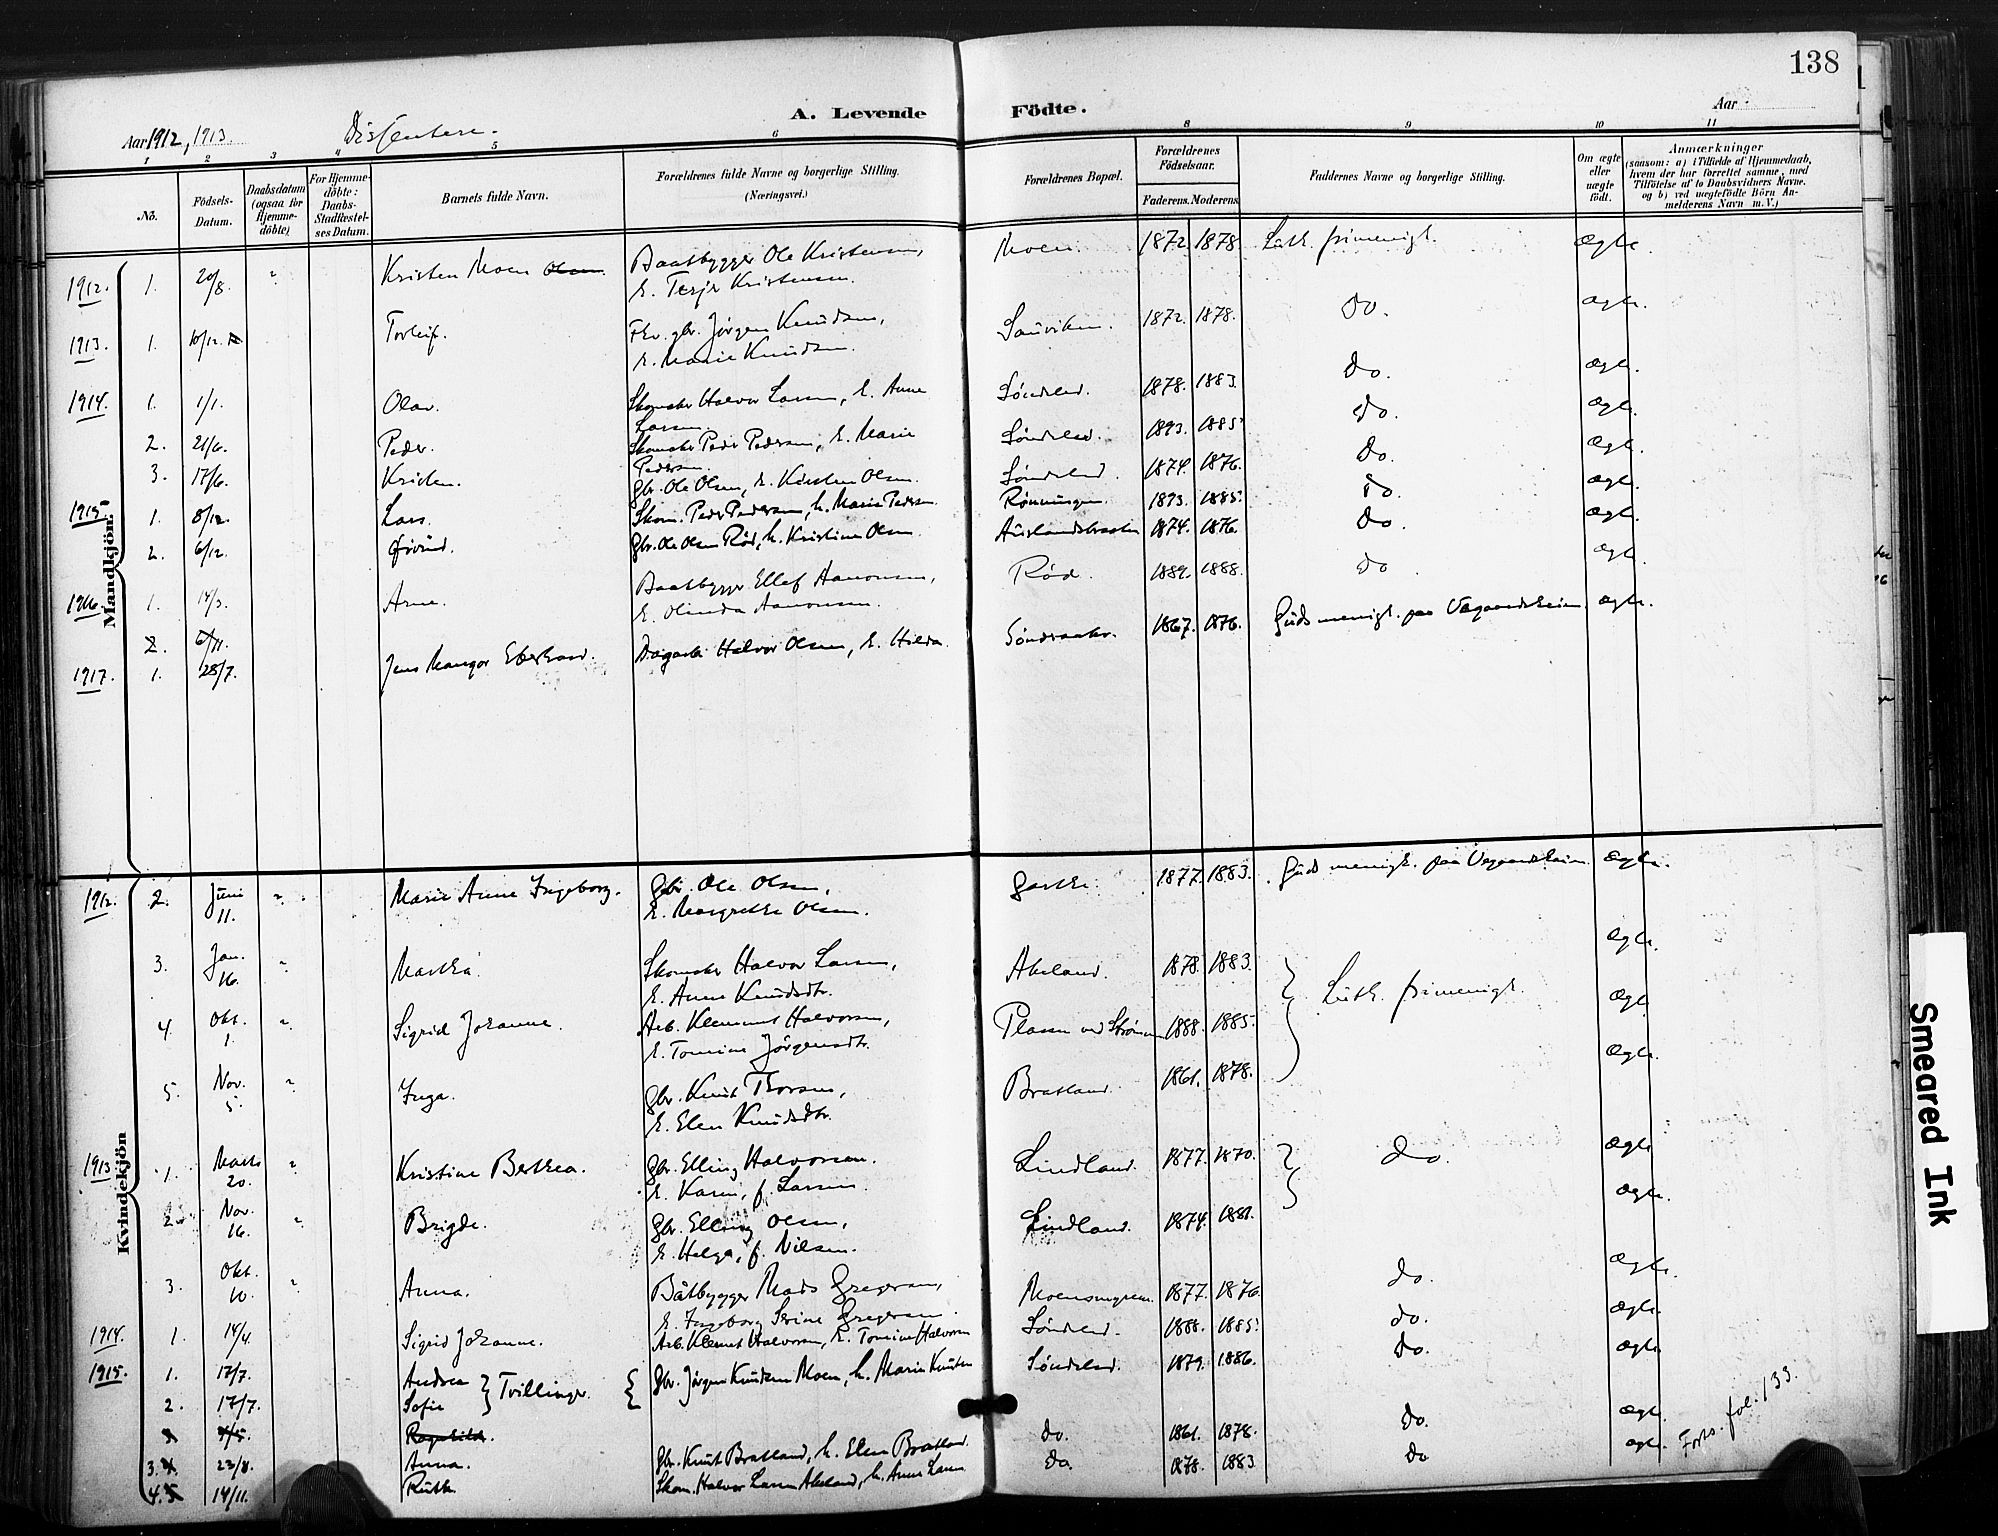 138
A. Levende Födte.
Aar 1912, 1913
Dissentere.
Aar
1 2 3 4 5 6 8 9 10 11
No.
Födsels-Datum.
Daabsdatum (ogsaa for Hjemme-döbte)
For Hjemme-döbte: Daabs-Stadfestel-ses Datum.
Barnets fulde Navn.
Forældrenes fulde Navne og borgerlige Stilling. (Næringsvei.)
Forældrenes Bopæl.
Forældrenes Födselsaar.
Faderens. Moderens.
Faddernes Navne og borgerlige Stilling.
Om ægte eller uægte födt.
Anmærkninger
(saasom: a) i Tilfælde af Hjemmedaab, hvem der har forrettet samme, med Tilföielse af to Daabsvidners Navne, og b) ved uægtefödte Börn An-melderens Navn m. V.)
Mandkjön.
1912. 1. 20/8. Kristen Moen Olsen Baatbygger Ole Kristensen, Moen. 1872. 1878. Luth. frimenigh. ægte.
h. Terje Kristensen
1913. 1. 10/12. Torleif. Fhv. gbr. Jørgen Knudsen, Sauviken. 1872. 1878. do. ægte.
h. Marie Knudsen.
1914. 1. 1/1. Olav. Skomaker Halvor Larsen, h. Anne Søndeled. 1878. 1883. do. ægte.
Larsen.
2. 21/6. Peder. Skomaker Peder Pedersen, h. Marie Søndeled. 1893. 1885. do. ægte.
Pedersen.
3. 17/6. Kristen. gbr. Ole Olsen, h. Kirsten Olsen. Søndeled. 1874. 1876. do. ægte.
1915. 1. 8/12. Lars. Skom. Peder Pedersen, h. Marie Pedersen Rønningen. 1893. 1885. do. ægte.
2. 6/12. Øivind. Gbr. Ole Olsen Rød, h. Kristine Olsen. Auslandsbraaten 1874. 1876. do. ægte.
1916. 1. 14/3. Arne. Baatbygger Ellef Aanonsen, Rød. 1889. 1888. do ægte.
h. Olinda Aanonsen.
2. 6/11.
1917. 1. 28/7. Jens Mangor Eberhard. Dagarb. Halvor Olsen, h. Hilda. Søndraaker. 1867. 1876. Guds menigh. paa Vegaardsheien ægte.
Kvindekjön
1912. 2. Juni 11. Marie Anne Ingeborg. Gbr. Ole Olsen, Garthe. 1877. 1883. Guds menigh. paa Vegaardsheien ægte.
h. Margrethe Olsen.
3. Jan. 16. Martha. Skomaker Halvor Larsen, Akeland. 1878. 1883. Luth. frimenigh. ægte.
h. Anne Knudsdtr.
4. Okt. 1. Sigrid Johanne. Arb. Klement Halvorsen, Plassen ved Strømmen 1888. 1885. ægte
h. Tomine Jørgensdtr.
5. Nov. 5. Inga. gbr. Knut Thorsen, Bratland. 1861. 1878. ægte.
h. Elen Knudsdtr.
1913. 1. Marts 20. Kristine Berthea. gbr. Elling Halvorsen. Lindland. 1877. 1870. do. ægte
h. Karen, f. Larsen.
2. Nov. 16. Brigde. gbr. Elling Olsen, Lindland. 1874. 1881. ægte.
h. Helga, f. Nilsen.
3. Okt. 10. Anna. Båtbygger Mads Gregersen, 1877. 1876. do. ægte.
h. Ingeborg Serine Gregersen.
1914. 1. 14/4. Sigrid Johanne. Arb. Klement Halvorsen, h. Tomine Halvorsen Søndeled. 1888. 1885. do. ægte.
1915. 1. 17/7. Andrea Tvillinger. Gbr. Jørgen Knudsen Moen, h. Marie Knutsen Søndeled. 1879. 1886. do. ægte.
2. 17/7. Sofie
3 Ragnhild.
3. 4. 23/8. Anna. Gbr. Knut Bratland, h. Elen Bratland. do. 1861. 1878. do. ægte.
4. 5 14/11. Ruth. Skom. Halvor Larsen Akeland, h. Anne Larsen do. 1878. 1883 do ægte.
Forts. fol. 133.
Smeared Ink